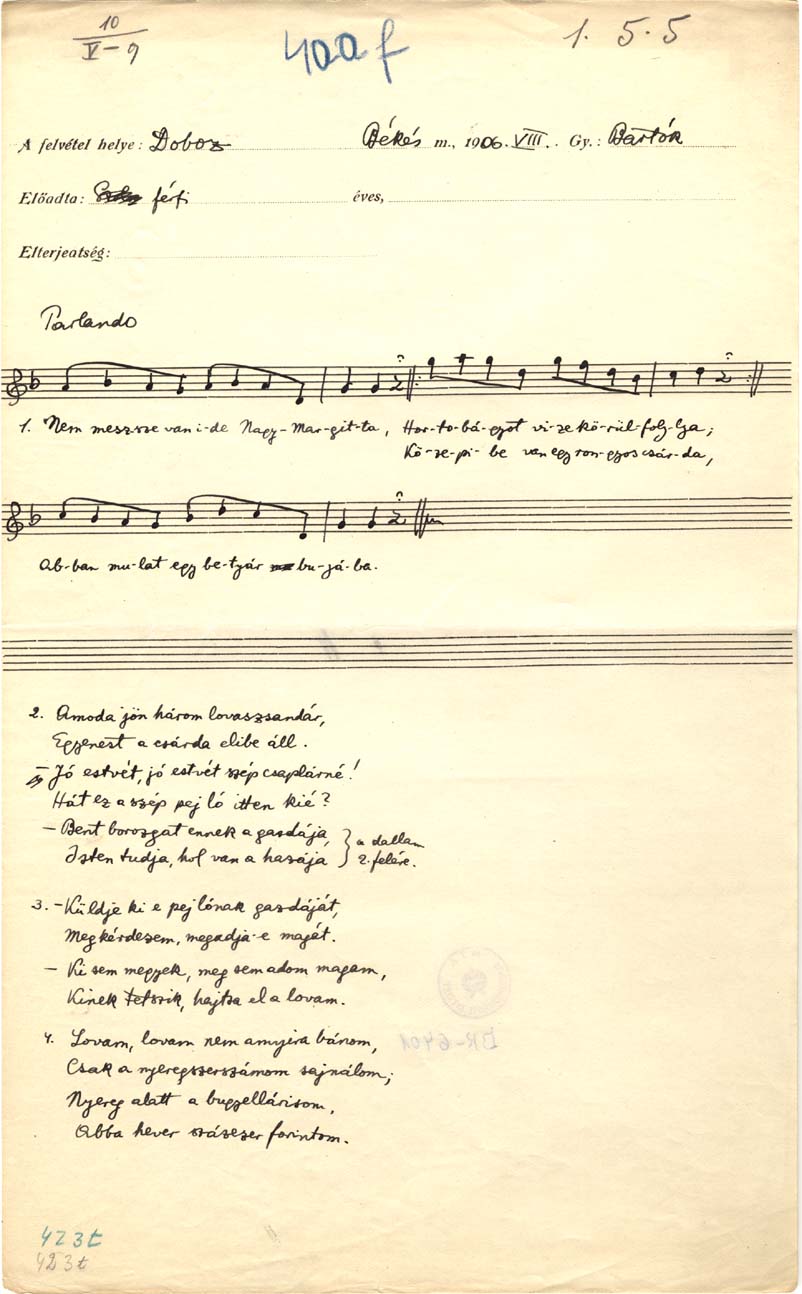 10
V-9
400 f
1. 5.5
A felvétel helye: Doboz Békés m., 1906. VIII. Gy.: Bartók
Előadta: férfi éves,
Elterjeatség:
Parlando
1. Nem meszsze van i-de Nagy-Mar-git-ta, Hor-to-bá-gyot vi-ze kö-rül-foly-lya;
Kö-ze-pi-be van egy ron-gyos csár-da,
Ab-ban mu-lat egy be-tyár bu-já-ba.
2. Amoda jön három lovaszsandár,
Egyenest a csárda elibe áll.
- Jó estvét, jó estvét szép csaplárné!
Hát ez a szép pej ló itten kié?
- Bent borozgat ennek a gazdája,
Isten tudja, hol van a hazája } a dallam
2. felére.
3. - Küldje ki e pej lónak gazdáját,
Megkérdezem, megadja-e magát.
- Ki sem megyek, meg sem adom magam,
Kinek tetszik, hajtsa el a lovam.
4. Lovam, lovam nem annyira bánom,
Csak a nyeregszerszámom sajnálom;
Nyereg alatt a bugyellárisom,
Abba hever százezer forintom.
BR-6401
423t
423t